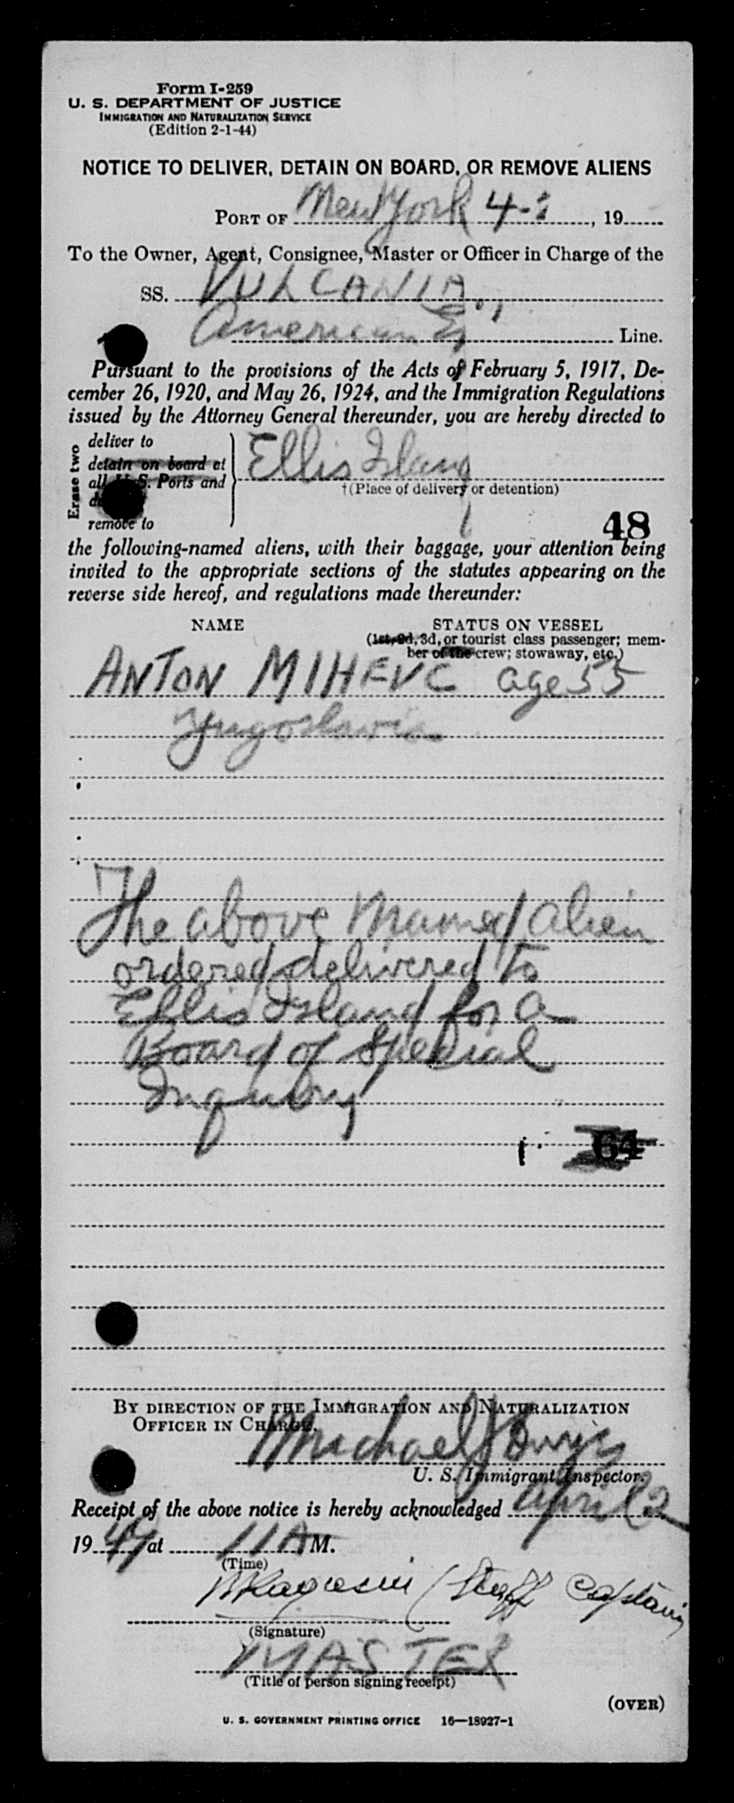 Form I-259
U. S. DEPARTMENT OF JUSTICE
IMMIGRATION AND NATURALIZATION SERVICE
(Edition 2-1-44)
NOTICE TO DELIVER, DETAIN ON BOARD, OR REMOVE ALIENS
PORT OF New York 4-2, 19
To the Owner, Agent, Consignee, Master or Officer in Charge of the
SS. VULCANIA
American Line.
Pursuant to the provisions of the Acts of February 5, 1917, De-
cember 26, 1920, and May 26, 1924, and the Immigration Regulations
issued by the Attorney General thereunder, you are hereby directed to
Erase two
deliver to
detain on board at
all U. S. Ports and
remove to
Ellis Island
†(Place of delivery or detention)
48
the following-named aliens, with their baggage, your attention being
invited to the appropriate sections of the statutes appearing on the
reverse side hereof, and regulations made thereunder:
NAME STATUS ON VESSEL
(1st, 2d, 3d, or tourist class passenger; mem-
ber of the crew; stowaway, etc.)
ANTON MIHEVC age 55
Yugoslavia
The above named alien
ordered delivered to
Ellis Island for a
Board of Special
Inquiry
64
BY DIRECTION OF THE IMMIGRATION AND NATURALIZATION
OFFICER IN CHARGE.
Michael J
U. S. Immigrant Inspector.
Receipt of the above notice is hereby acknowledged April 2
19 47 at 11 A M.
(Time)
(Staff Captain
(Signature)
MASTER
(Title of person signing receipt)
(OVER)
U. S. GOVERNMENT PRINTING OFFICE 16—18927-1